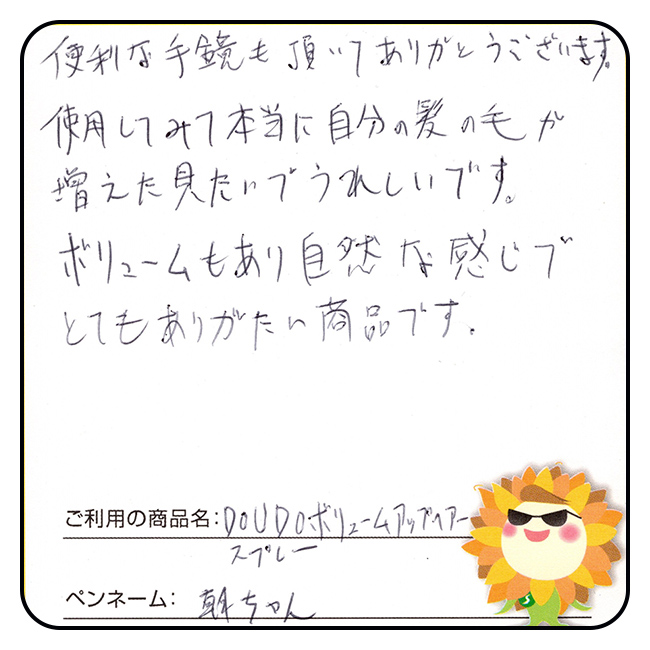 便利な手鏡も頂いてありがとうございます。
使用してみて本当に自分の髪の毛が
増えた見たいでうれしいです。
ボリュームもあり自然な感じで
とてもありがたい商品です.
ご利用の商品名: DOUDOボリュームアップヘアー
スプレー
ペンネーム: ちゃん